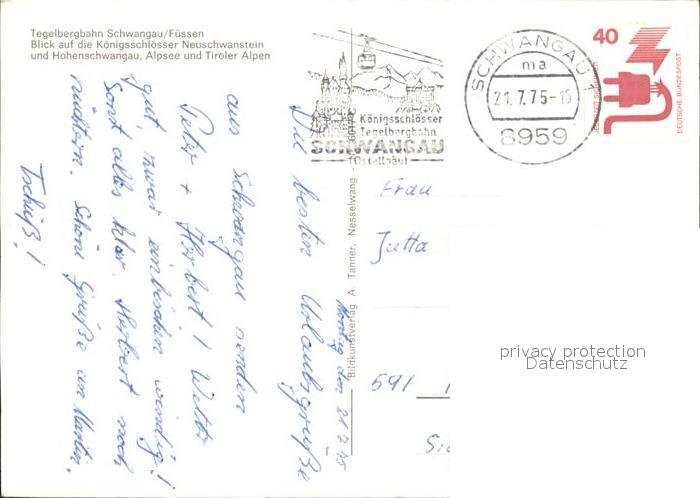 Tegelbergbahn Schwangau/Füssen
Blick auf die Königsschlösser Neuschwanstein
und Hohenschwangau, Alpsee und Tiroler Alpen
Königsschlösser
Tegelbergbahn
SCHWANGAU
(Ostallgäu)
SCHWANGAU 1
ma
21.7.75-16
8959
40
DEUTSCHE BUNDESPOST
Montag den 21.7.75
Die besten Urlaubsgrüße
aus Schwangau senden
Peter + Herbert! Wetter
gut, zwar ein bißchen windig!
Sonst alles klar. Herbert noch
nüchtern. Schöne Grüße an Martin.
Tschüß!
Bildkunstverlag A. Tanner, Nesselwang
Frau
Jutta
591
privacy protection
Datenschutz